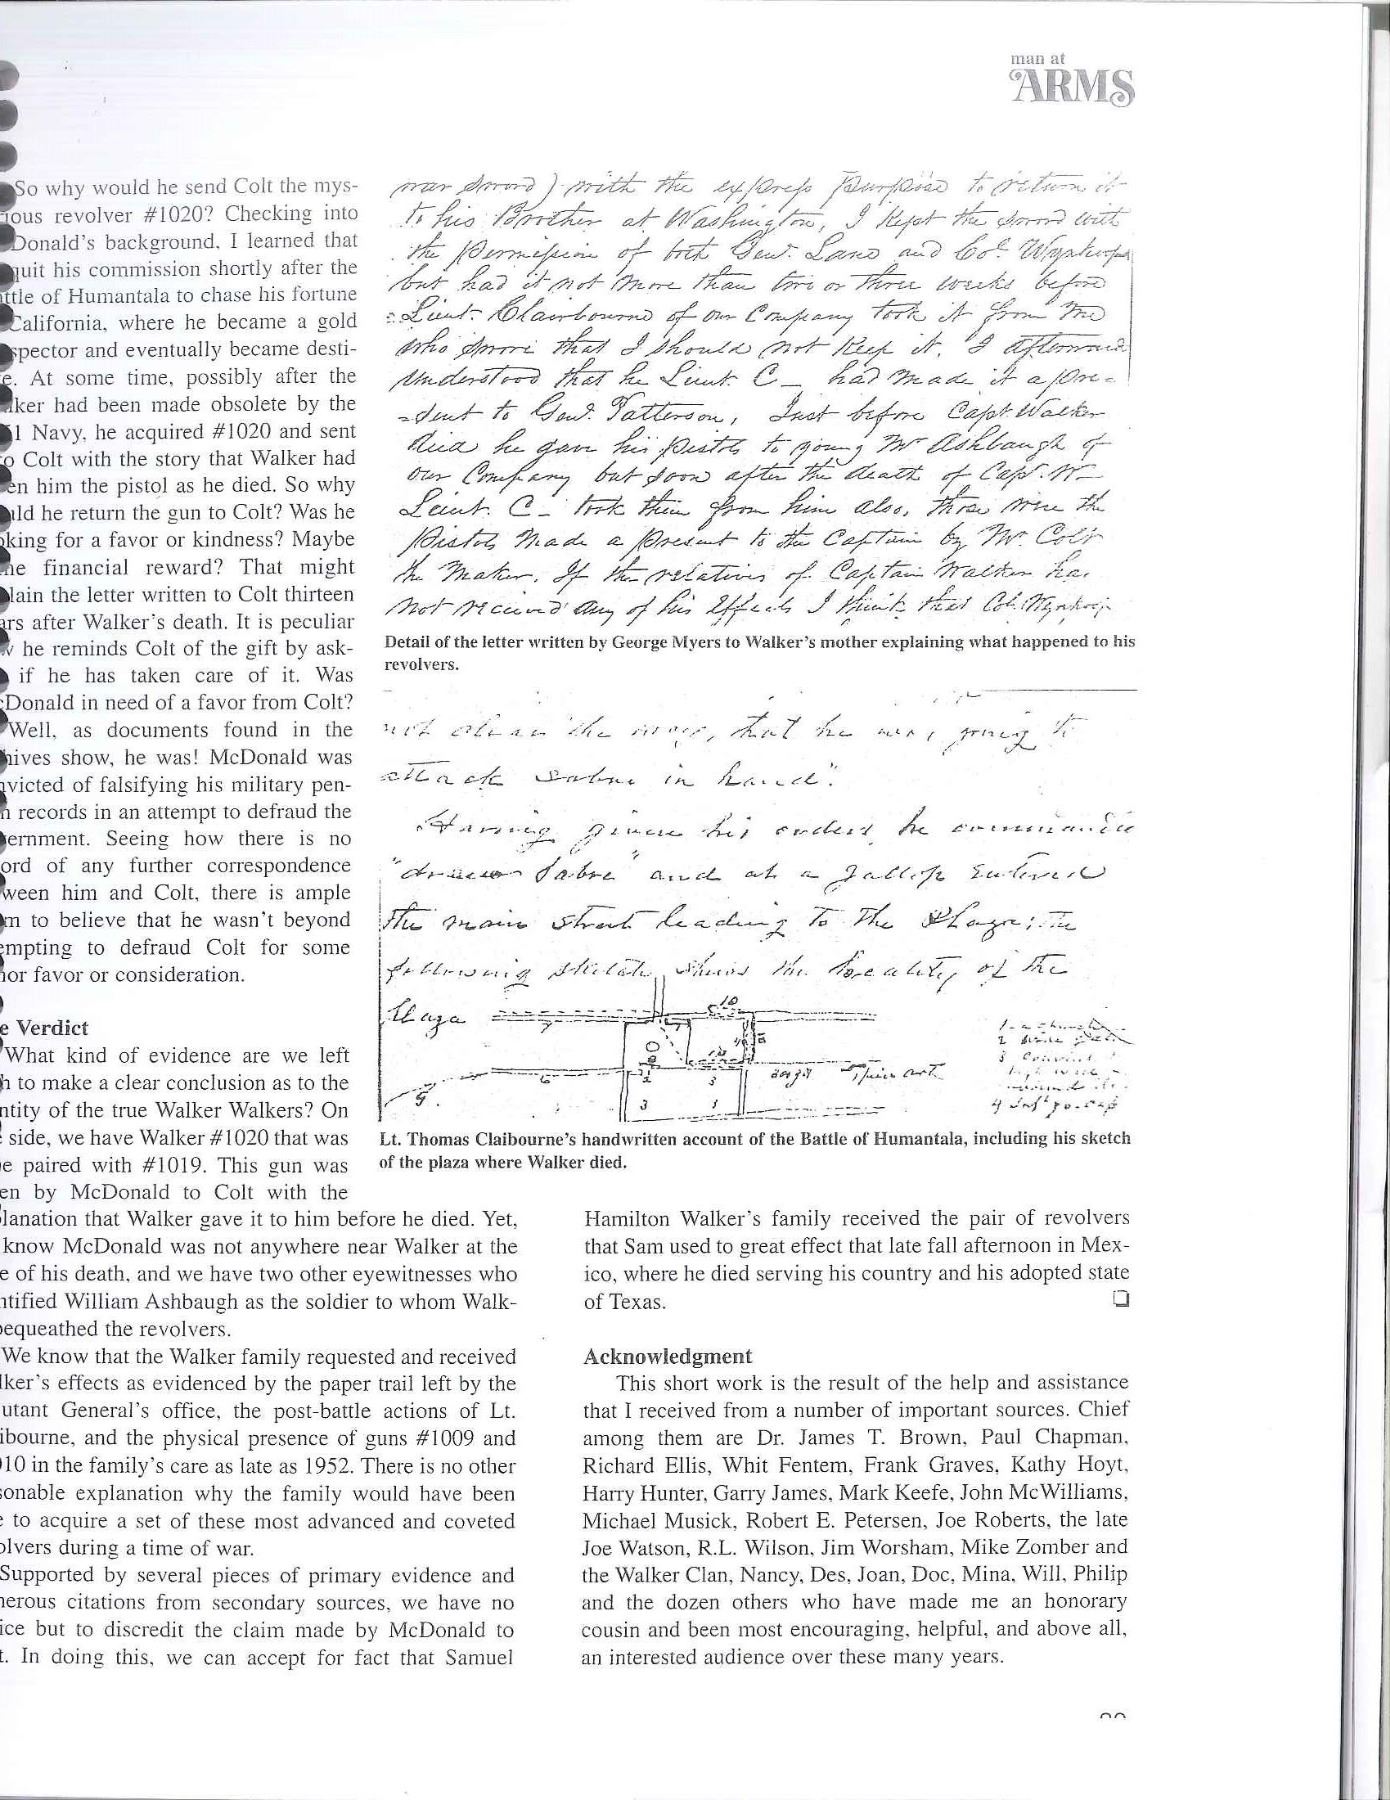 man at
ARMS
So why would he send Colt the mys-
ious revolver #1020? Checking into
Donald's background, I learned that
quit his commission shortly after the
ttle of Humantala to chase his fortune
California, where he became a gold
spector and eventually became desti-
e. At some time, possibly after the
lker had been made obsolete by the
1 Navy, he acquired #1020 and sent
o Colt with the story that Walker had
en him the pistol as he died. So why
uld he return the gun to Colt? Was he
king for a favor or kindness? Maybe
ne financial reward? That might
lain the letter written to Colt thirteen
ars after Walker's death. It is peculiar
v he reminds Colt of the gift by ask-
if he has taken care of it. Was
cDonald in need of a favor from Colt?
Well, as documents found in the
hives show, he was! McDonald was
nvicted of falsifying his military pen-
n records in an attempt to defraud the
ernment. Seeing how there is no
ord of any further correspondence
ween him and Colt, there is ample
m to believe that he wasn't beyond
empting to defraud Colt for some
nor favor or consideration.
e Verdict
What kind of evidence are we left
h to make a clear conclusion as to the
ntity of the true Walker Walkers? On
side, we have Walker #1020 that was
e paired with #1019. This gun was
en by McDonald to Colt with the
lanation that Walker gave it to him before he died. Yet,
know McDonald was not anywhere near Walker at the
e of his death, and we have two other eyewitnesses who
ntified William Ashbaugh as the soldier to whom Walk-
bequeathed the revolvers.
We know that the Walker family requested and received
lker's effects as evidenced by the paper trail left by the
utant General's office, the post-battle actions of Lt.
ibourne, and the physical presence of guns #1009 and
10 in the family's care as late as 1952. There is no other
sonable explanation why the family would have been
e to acquire a set of these most advanced and coveted
olvers during a time of war.
Supported by several pieces of primary evidence and
nerous citations from secondary sources, we have no
ice but to discredit the claim made by McDonald to
t. In doing this, we can accept for fact that Samuel
war sword) with the express purpose to return it
to his Brother at Washington, I kept the sword with
the permission of both Genl. Lane and Col. Wynkoop
but had it not more than two or three weeks before
Lieut. Clairbourne of our Company took it from me
who swore that I should not keep it. I afterward
understood that he Lieut. C— had made it a pre-
-sent to Genl. Patterson, Just before Capt Walker
died he gave his pistols to young Mr Ashbaugh of
our Company but soon after the death of Capt. W—
Lieut. C— took them from him also, those were the
Pistols made a present to the Captain by Mr. Colt
the Maker. If the relatives of Captain Walker has
not received any of his effects I think that Col. Wynkoop
Detail of the letter written by George Myers to Walker's mother explaining what happened to his
revolvers.
that he was going to
attack sabre in hand".
Having given his orders, he commanded
"draw Sabre" and at a gallop entered
the main street leading to the Plaza; the
following sketch shows the locality of the
Plaza
10
7
6
9.
3
1
3
4
Lt. Thomas Claibourne's handwritten account of the Battle of Humantala, including his sketch
of the plaza where Walker died.
Hamilton Walker's family received the pair of revolvers
that Sam used to great effect that late fall afternoon in Mex-
ico, where he died serving his country and his adopted state
of Texas.
Acknowledgment
This short work is the result of the help and assistance
that I received from a number of important sources. Chief
among them are Dr. James T. Brown, Paul Chapman,
Richard Ellis, Whit Fentem, Frank Graves, Kathy Hoyt,
Harry Hunter, Garry James, Mark Keefe, John McWilliams,
Michael Musick, Robert E. Petersen, Joe Roberts, the late
Joe Watson, R.L. Wilson, Jim Worsham, Mike Zomber and
the Walker Clan, Nancy, Des, Joan, Doc, Mina, Will, Philip
and the dozen others who have made me an honorary
cousin and been most encouraging, helpful, and above all,
an interested audience over these many years.